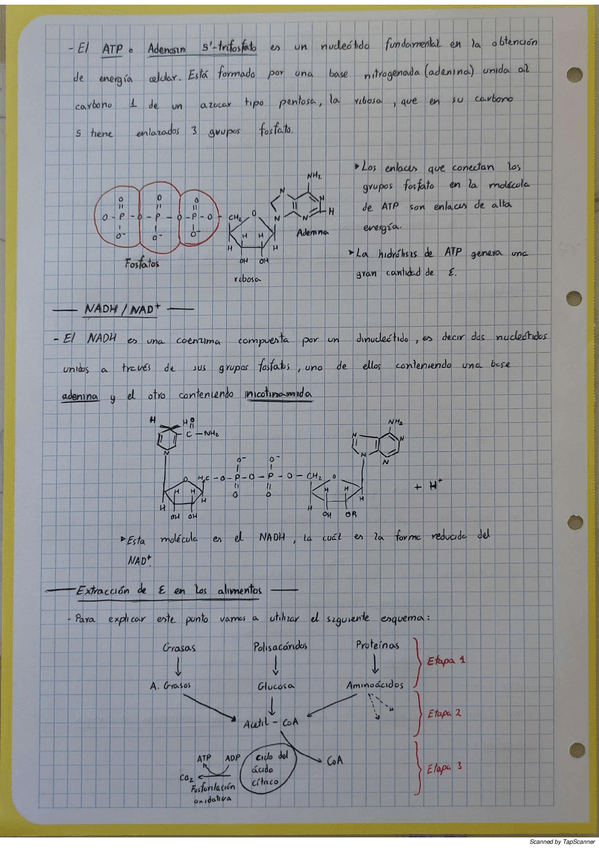 - El ATP o Adenosin 5'-trifosfato es un nucleótido fundamental en la obtención
de energía celular. Está formado por una base nitrogenada (adenina) unida al
carbono 1 de un azucar tipo pentosa, la ribosa, que en su carbono
5 tiene enlazados 3 grupos fosfato.
▸ Los enlaces que conectan los
grupos fosfato en la molécula
de ATP son enlaces de alta
energía.
▸ La hidrólisis de ATP genera una
gran cantidad de E.
NH₂
N N
O O O
O - P - O - P - O - P - O - CH₂ O N N H
O⁻ O⁻ O⁻
H H H H
OH OH
Adenina
Fosfatos
ribosa
NADH / NAD⁺
- El NADH es una coenzima compuesta por un dinucleótido, es decir dos nucleótidos
unidos a través de sus grupos fosfatos, uno de ellos conteniendo una base
adenina y el otro conteniendo nicotinamida
H H O
C - NH₂
N
NH₂
N N
N N
O⁻ O⁻
O H₂C - O - P - O - P - O - CH₂ O
O O
H H H H
OH OH
H H
OH OR
+ H⁺
▸ Esta molécula es el NADH, la cuál es la forma reducida del
NAD⁺.
Extracción de E en los alimentos
- Para explicar este punto vamos a utilizar el siguiente esquema:
Grasas Polisacáridos Proteínas
Etapa 1
A. Grasos Glucosa Aminoácidos
Etapa 2
Acetil - CoA
ATP ADP
Ciclo del
ácido
cítrico
CoA
Etapa 3
CO₂
Fosforilación
oxidativa
Scanned by TapScanner